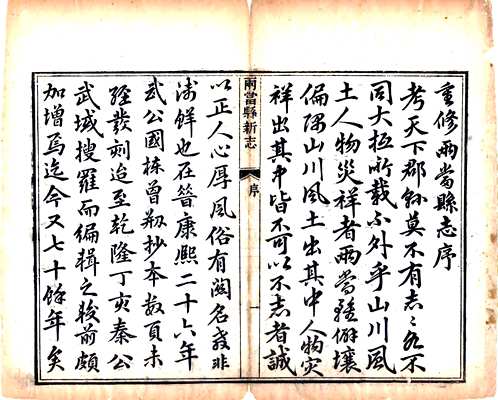 重修兩當縣志序
考天下郡縣莫不有志〻各不
同大抵所載不外乎山川風
土人物災祥者兩當雖僻壤
偏隅山川風土出其中人物灾
祥出其中皆不可以不志者誠
兩當縣新志
序
一
以正人心厚風俗有關名教非
淺鮮也在昔康熙二十六年
武公國棟曾刱抄本数頁未
經發刻迨至乾隆丁亥秦公
武域搜羅而編輯之較前頗
加增焉迄今又七十餘年矣